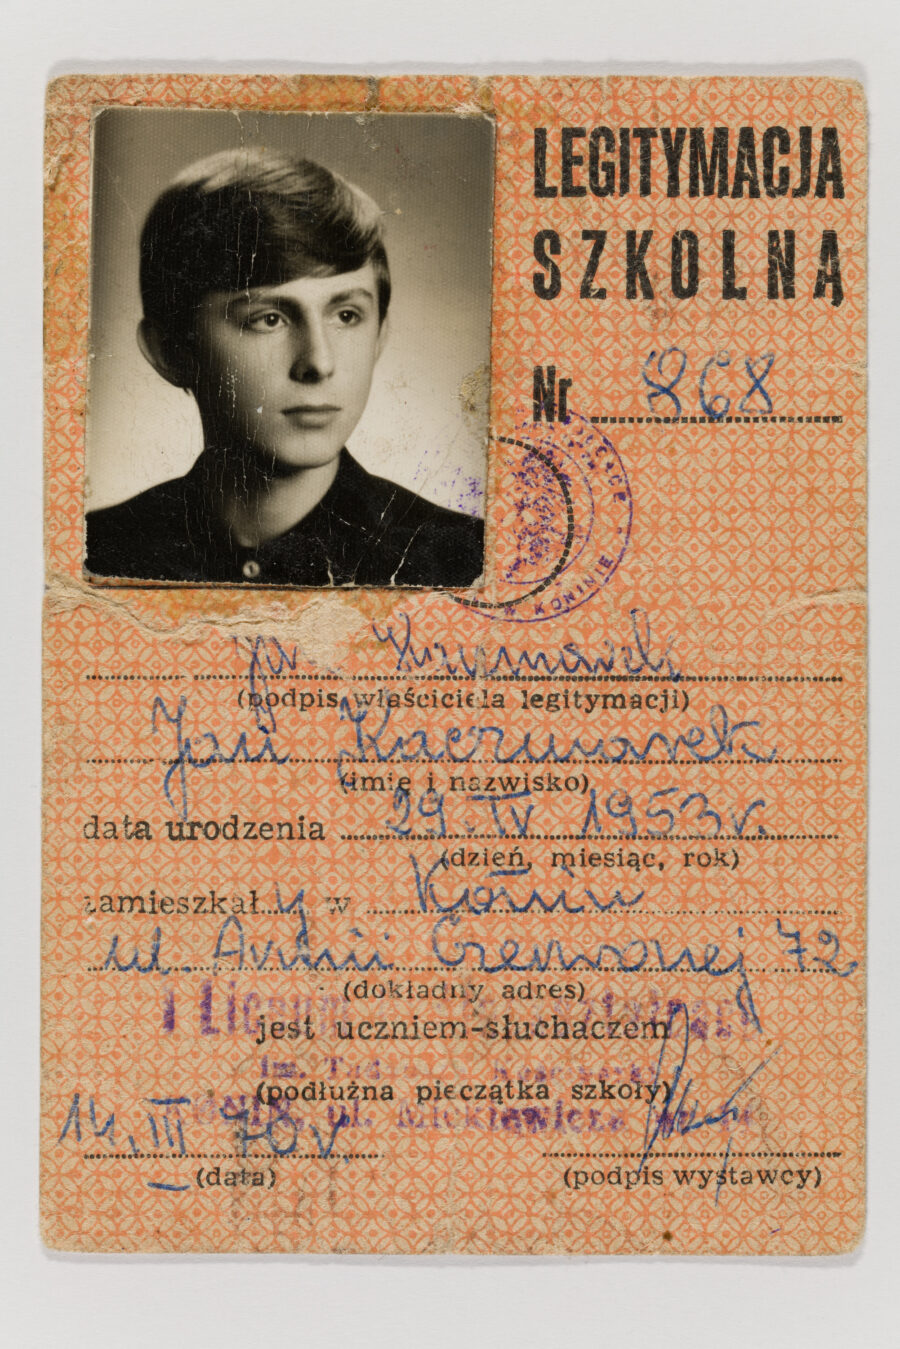 LEGITYMACJA
SZKOLNĄ
Nr 868
W KONINIE
Jan Kaczmarek
(podpis właściciela legitymacji)
Jan Kaczmarek
(imię i nazwisko)
data urodzenia 29.IV 1953 r.
(dzień, miesiąc, rok)
zamieszkały w Konin
ul. Armii Czerwonej 72
(dokładny adres)
I Liceum
jest uczniem-słuchaczem
im.
(podłużna pieczątka szkoły)
ul. Mickiewicza
14.III 70 r.
(data)
(podpis wystawcy)